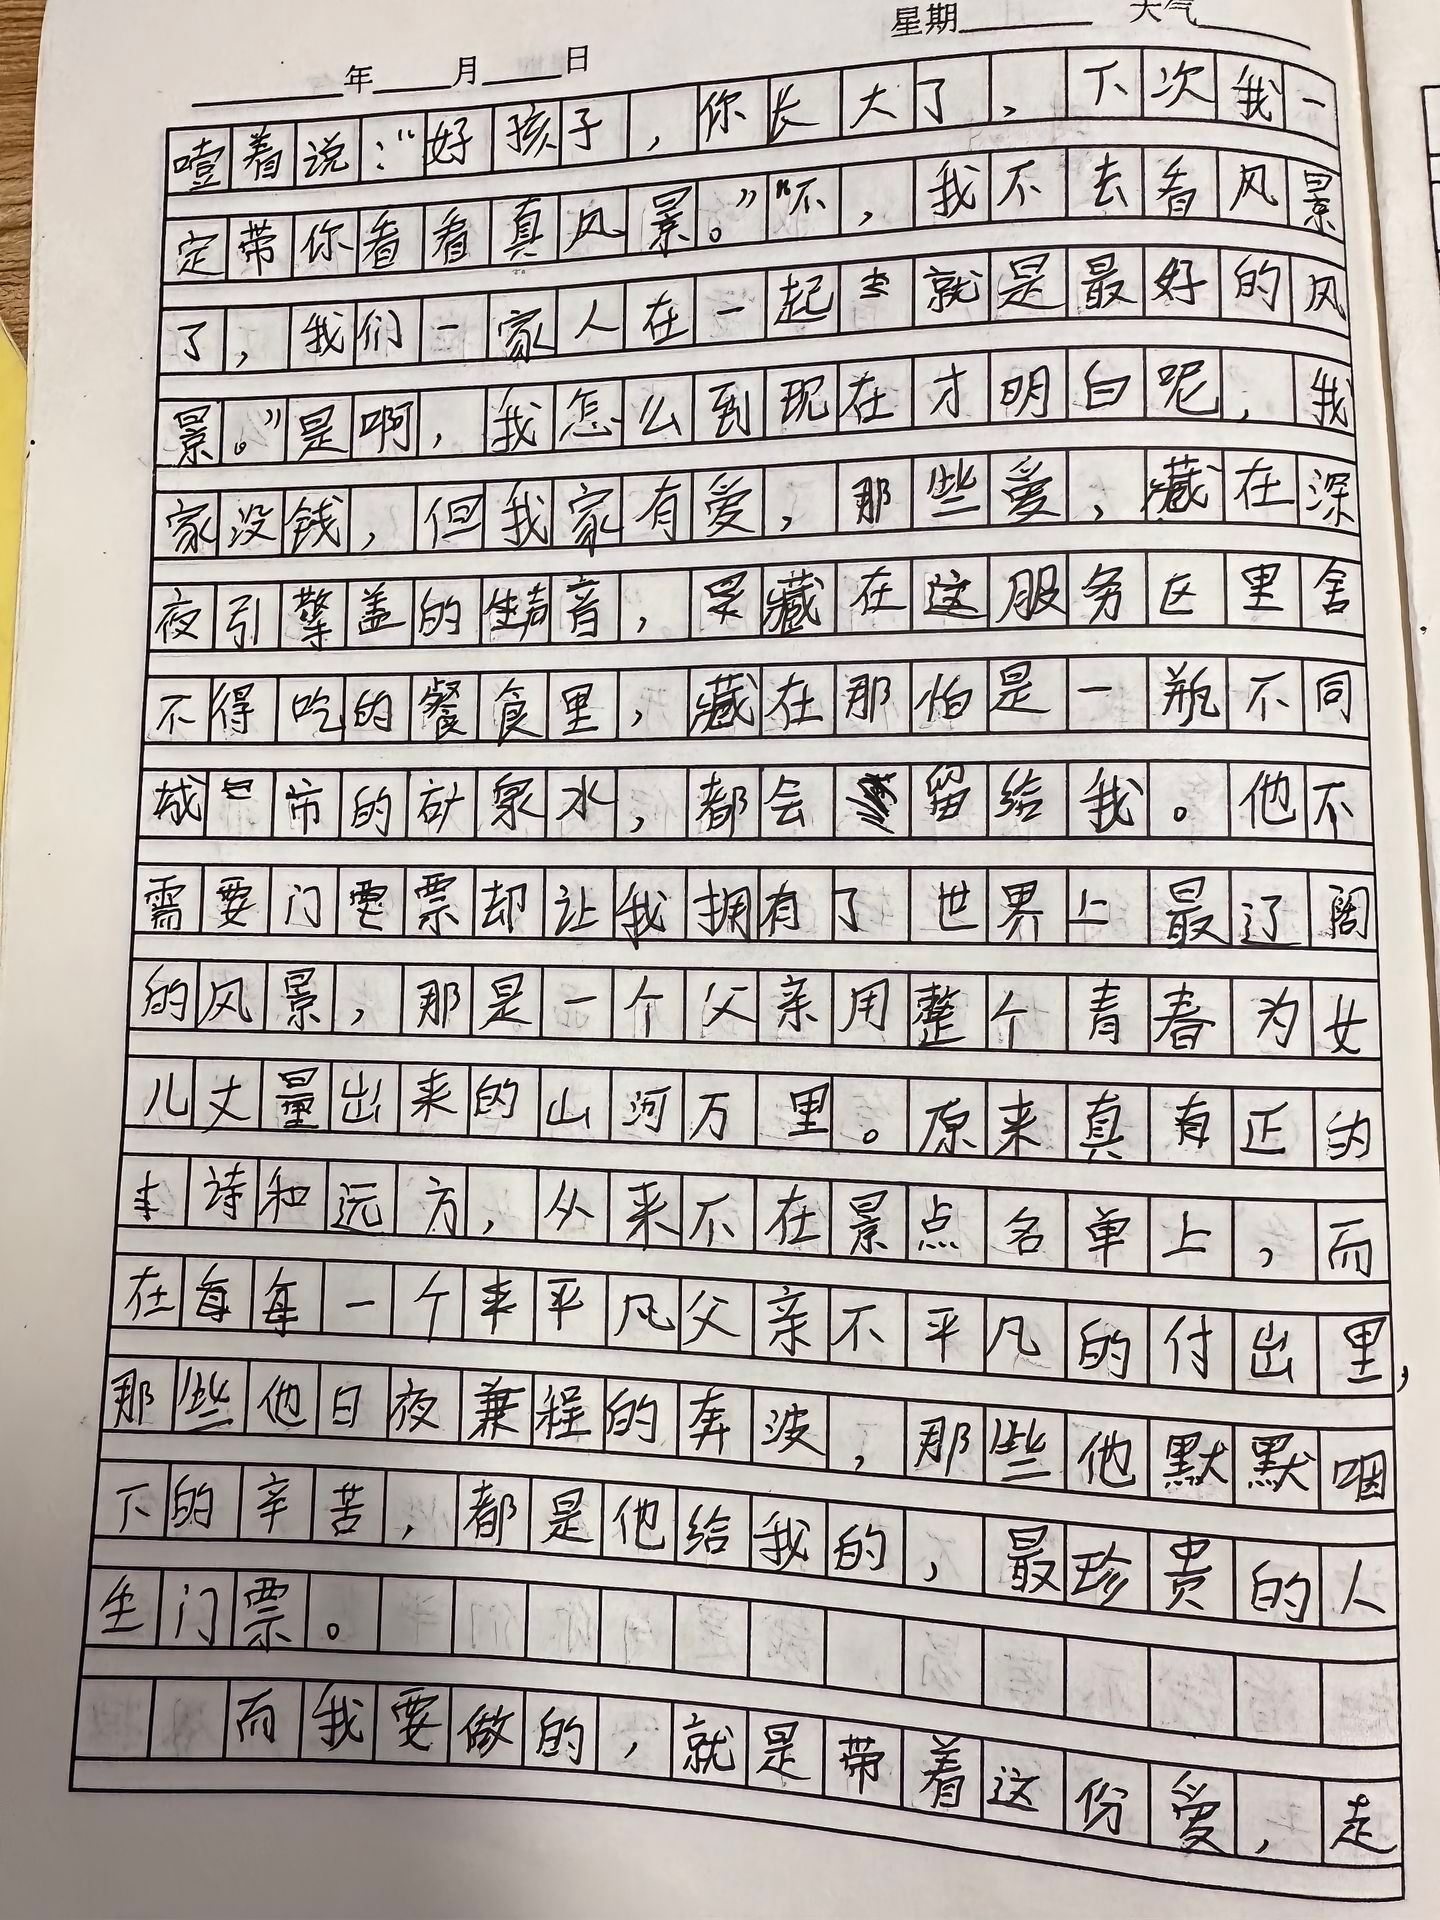 星期 天气
年 月 日
噎着说：“好孩子，你长大了，下次我一
定带你看看真风景。”“不，我不去看风景
了，我们一家人在一起就是最好的风
景。”是啊，我怎么到现在才明白呢，我
家没钱，但我家有爱，那些爱，藏在深
夜引擎盖的声音，藏在这服务区里舍
不得吃的餐食里，藏在那怕是一瓶不同
城市的矿泉水，都会留给我。他不
需要门票却让我拥有了世界上最辽阔
的风景，那是一个父亲用整个青春为女
儿丈量出来的山河万里。原来真正的
诗和远方，从来不在景点名单上，而
在每每一个平凡父亲不平凡的付出里，
那些他日夜兼程的奔波，那些他默默咽
下的辛苦，都是他给我的，最珍贵的人
生门票。
而我要做的，就是带着这份爱，走